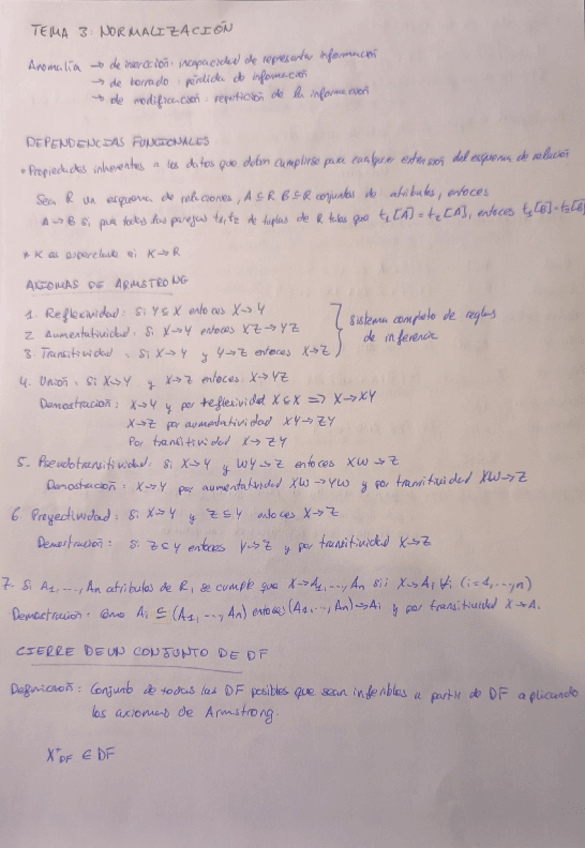 TEMA 3: NORMALIZACIÓN
Anomalía → de inserción: incapacidad de representar información
→ de borrado: pérdida de información
→ de modificación: repetición de la información
DEPENDENCIAS FUNCIONALES
• Propiedades inherentes a los datos que deben cumplirse para cualquier extensión del esquema de relación
Sea R un esquema de relaciones, A ⊆ R B ⊆ R conjuntos de atributos, entonces
A → B si para todas las parejas t1, t2 de tuplas de R tales que t1[A] = t2[A], entonces t1[B] = t2[B]
* K es superclave si K → R
AXIOMAS DE ARMSTRONG
1. Reflexividad: Si Y ⊆ X entonces X → Y
2. Aumentatividad: Si X → Y entonces XZ → YZ
3. Transitividad: Si X → Y y Y → Z entonces X → Z
sistema completo de reglas
de inferencia
4. Unión: Si X → Y y X → Z entonces X → YZ
Demostración: X → Y y por reflexividad X ⊆ X ⟹ X → XY
X → Z por aumentatividad XY → ZY
Por transitividad X → ZY
5. Pseudotransitividad: Si X → Y y WY → Z entonces XW → Z
Demostración: X → Y por aumentatividad XW → YW y por transitividad XW → Z
6. Proyectividad: Si X → Y y Z ⊆ Y entonces X → Z
Demostración: Si Z ⊆ Y entonces Y → Z y por transitividad X → Z
7. Si A1, ..., An atributos de R, se cumple que X → A1, ..., An sii X → Ai ∀i (i = 1, ..., n)
Demostración: Como Ai ⊆ (A1, ..., An) entonces (A1, ..., An) → Ai y por transitividad X → Ai
CIERRE DE UN CONJUNTO DE DF
Definición: Conjunto de todas las DF posibles que sean inferibles a partir de DF aplicando
los axiomas de Armstrong.
X⁺DF ∈ DF